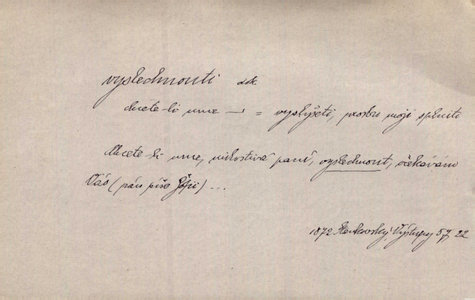 vyslechnouti dok
chcete-li mne —) = vyslyšeti, prosbu moji splniti
Chcete-li mne, milostivá paní, vyslechnout, očekávám
Vás (pán píše ) ...
1872 Výstupy 57. 22